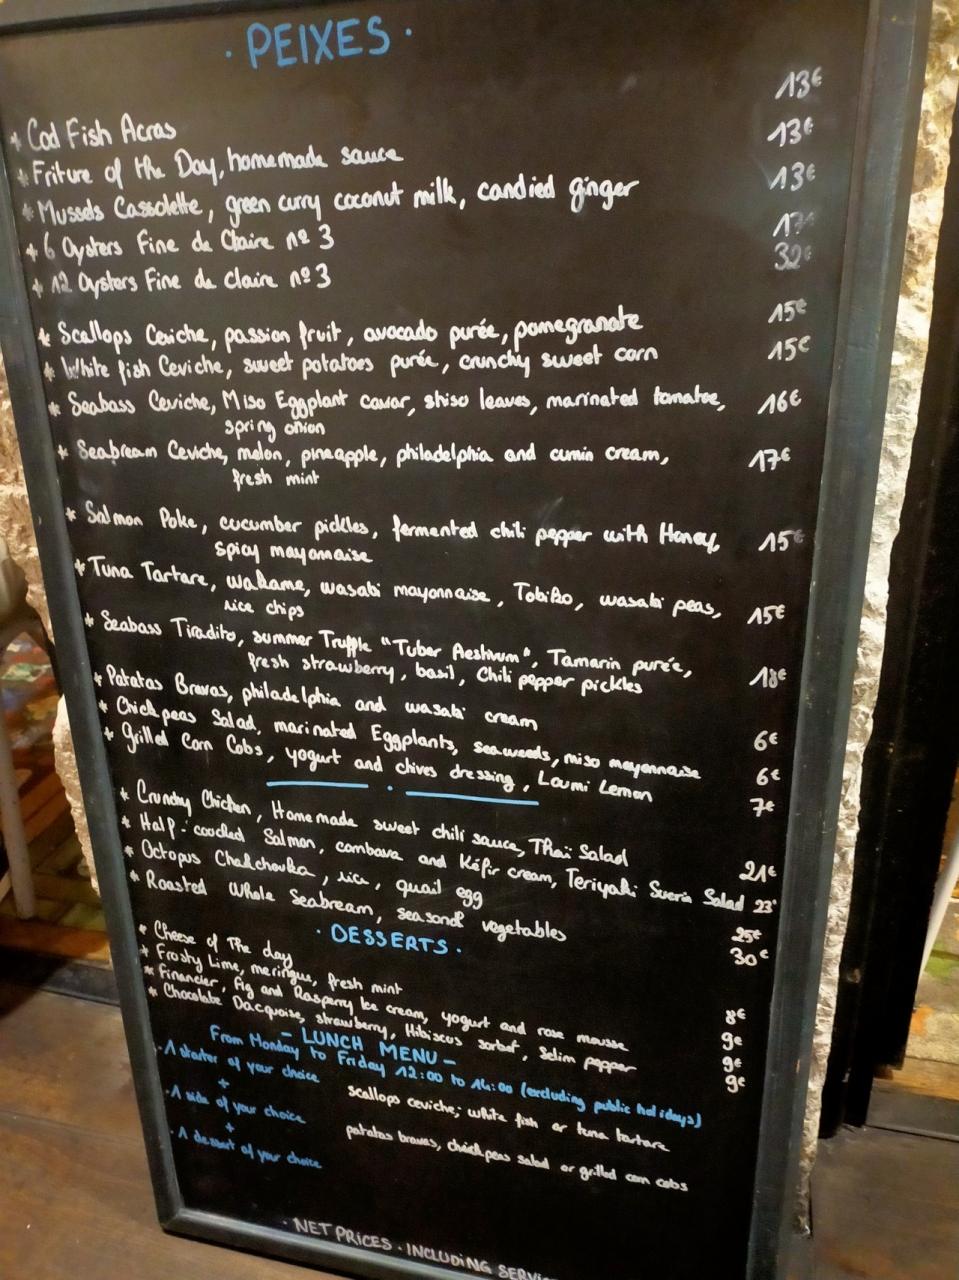 · PEIXES ·
* Cod Fish Acras 13€
* Friture of the Day, homemade sauce 13€
* Mussels Cassolette, green curry coconut milk, candied ginger 13€
* 6 Oysters Fine de Claire nº 3
* 12 Oysters Fine de Claire nº 3 32€
* Scallops Ceviche, passion fruit, avocado purée, pomegranate 15€
* White fish Ceviche, sweet potatoes purée, crunchy sweet corn 15€
* Seabass Ceviche, Miso Eggplant caviar, shiso leaves, marinated tomatoe, 16€
spring onion
* Seabream Ceviche, melon, pineapple, philadelphia and cumin cream, 17€
fresh mint
* Salmon Poke, cucumber pickles, fermented chili pepper with Honey, 15€
spicy mayonnaise
* Tuna Tartare, wakame, wasabi mayonnaise, Tobiko, wasabi peas, 15€
rice chips
* Seabass Tiradito, summer Truffle "Tuber Aestivum", Tamarin purée, 18€
fresh strawberry, basil, Chili pepper pickles
* Patatas Bravas, philadelphia and wasabi cream 6€
* Chickpeas Salad, marinated Eggplants, seaweeds, miso mayonnaise 6€
* Grilled Corn Cobs, yogurt and chives dressing, Loumi Lemon 7€
* Crunchy Chicken, Homemade sweet chili sauce, Thaï Salad 21€
* Half-coocked Salmon, combava and Kéfir cream, Teriyaki Sucrin Salad 23€
* Octopus Chakchouka, rice, quail egg 25€
* Roasted Whole Seabream, seasonal vegetables 30€
· DESSERTS ·
* Cheese of The day 8€
* Frosty Lime, meringue, fresh mint 9€
* Financier, Fig and Rasperry Ice cream, yogurt and rose mousse 9€
* Chocolate Dacquoise, strawberry, Hibiscus sorbet, Selim pepper 9€
- LUNCH MENU -
From Monday to Friday 12:00 to 14:00 (excluding public holidays)
· 1 starter of your choice scallops ceviche, white fish or tuna tartare
+
· 1 side of your choice patatas bravas, chickpeas salad or grilled corn cobs
+
· 1 dessert of your choice
· NET PRICES · INCLUDING